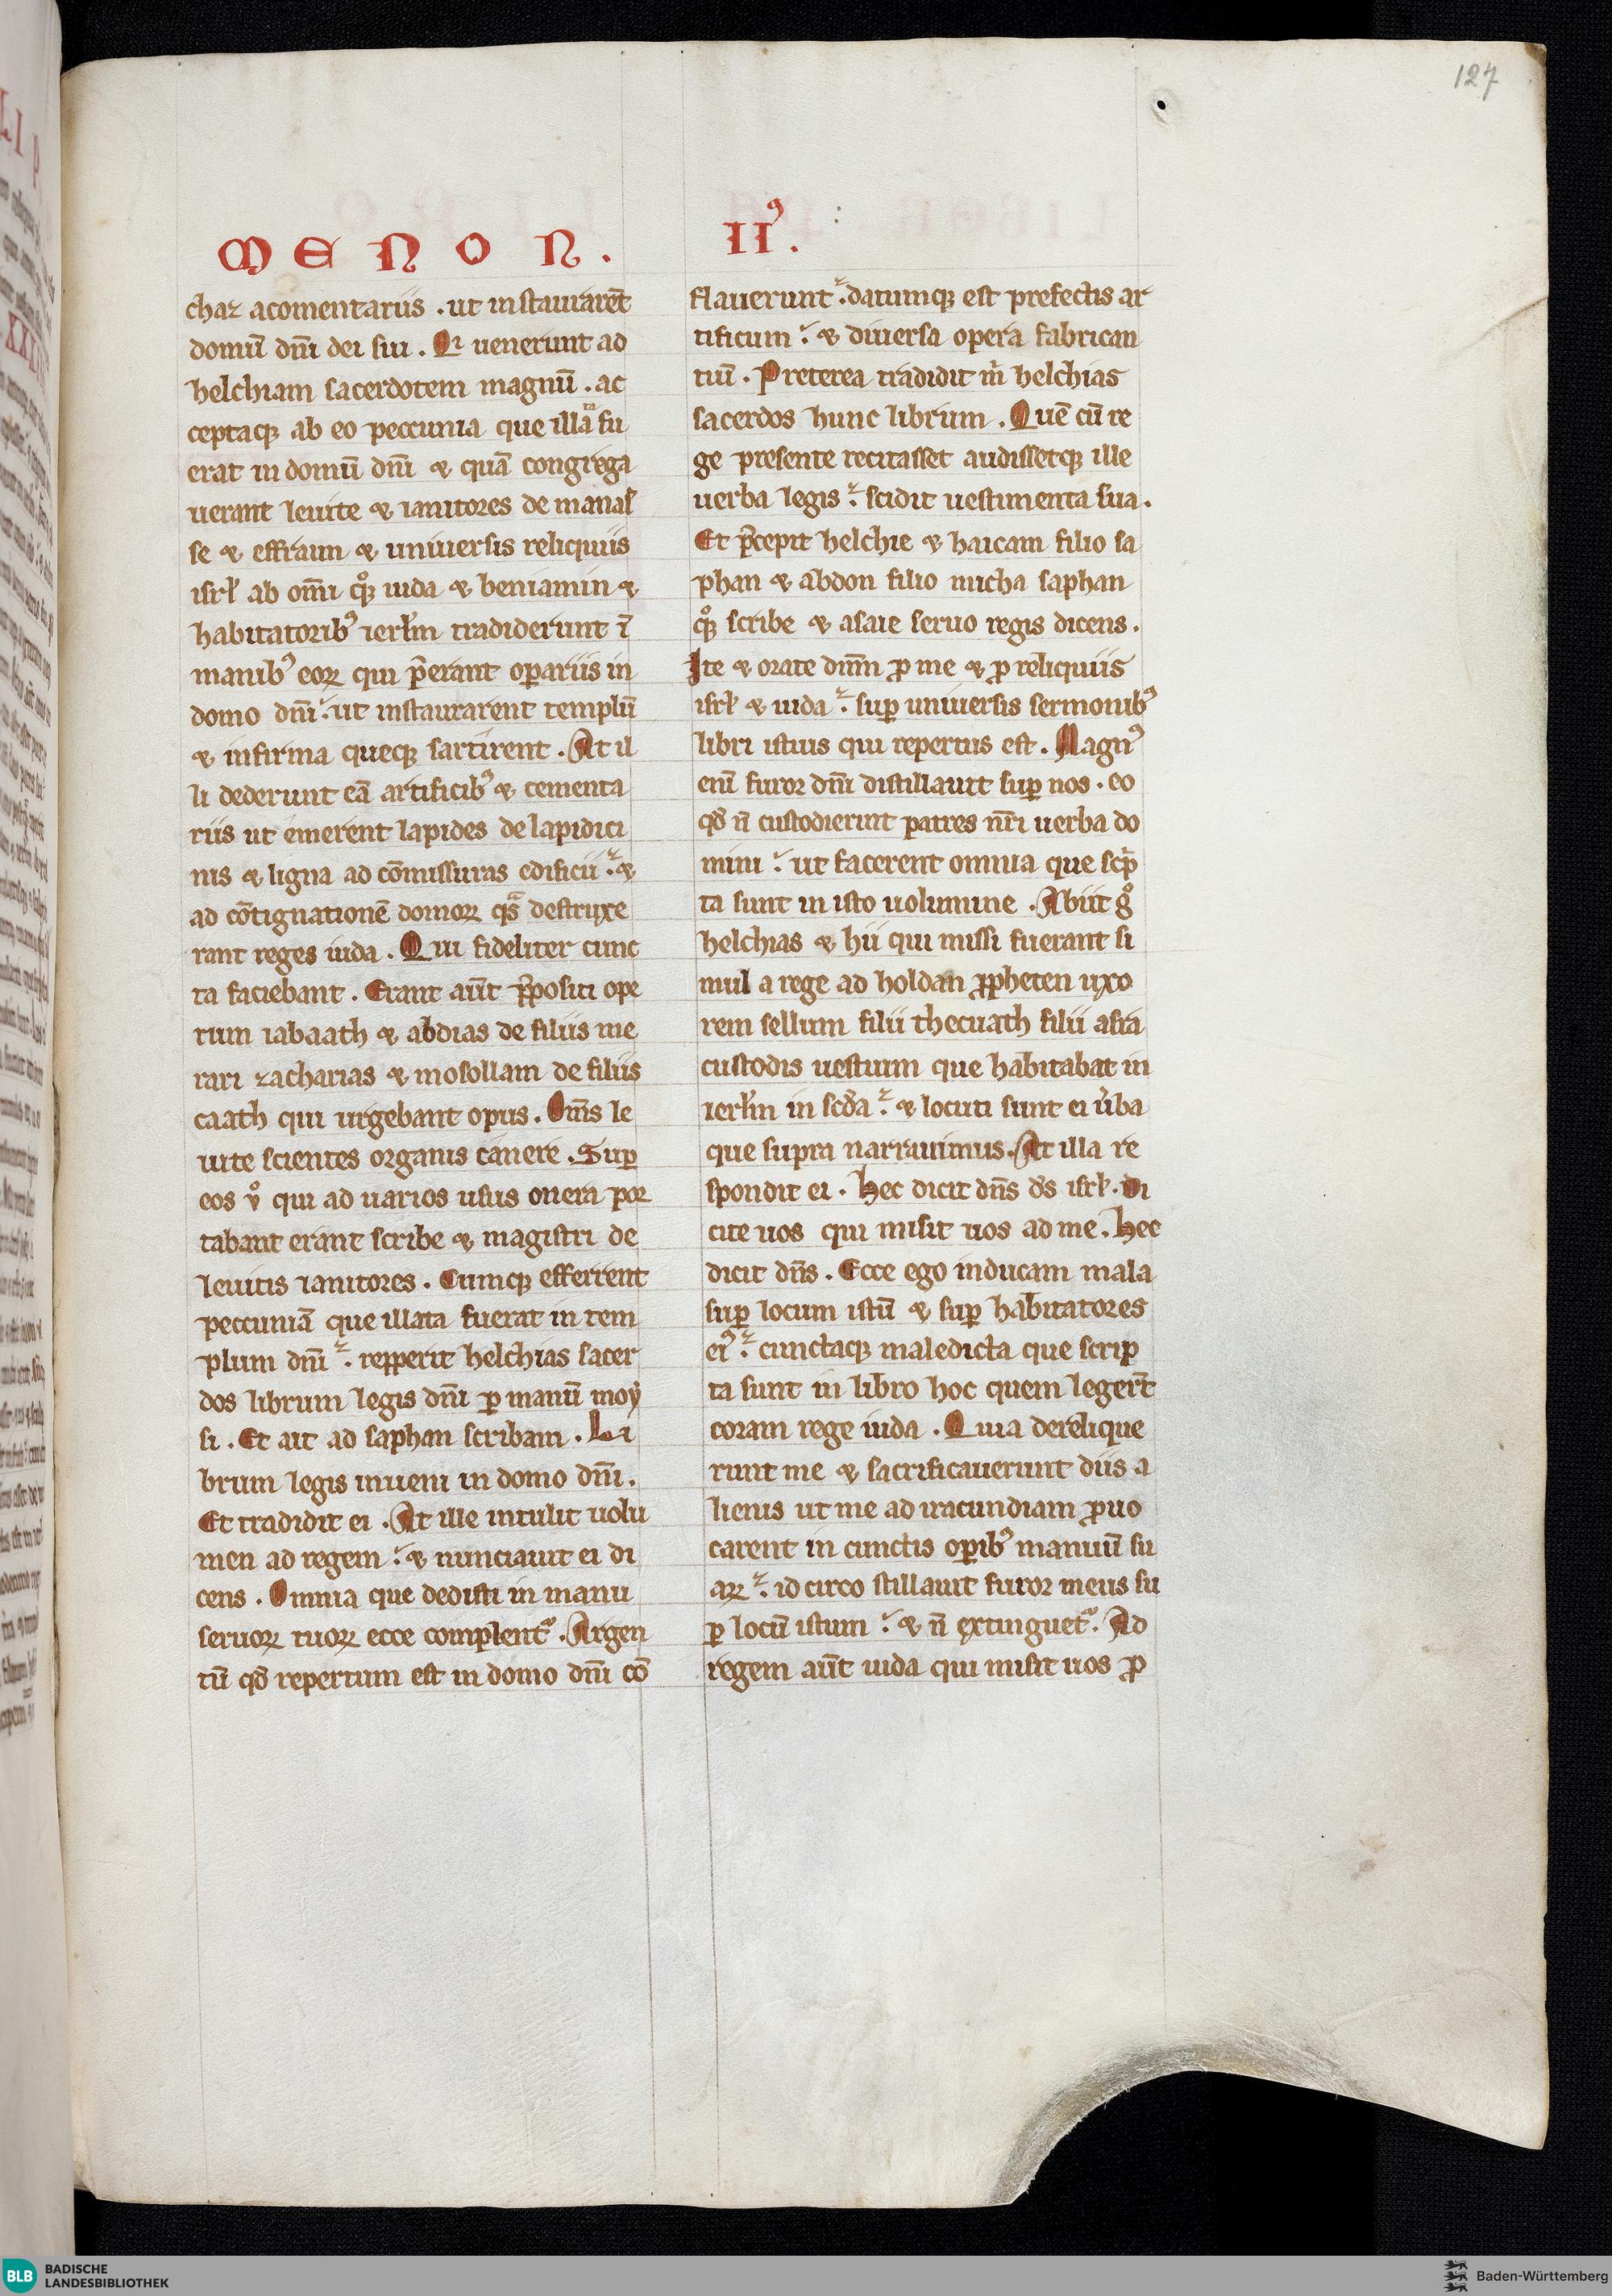 127
MENON. II⁹.
chaz acomentariis . ut instaurarēt
domū dn̄i dei sui . Qi uenerunt ad
helchiam sacerdotem magnū . ac
ceptaqꝫ ab eo peccunia que illaᵗᵃ fu
erat in domū dn̄i & quā congrega
uerant leuite & ianitores de manas
se & effraim & uniuersis reliquiis
isrł ab om̄i qꝫͦ iuda & beniamin &
habitatoribꝰ ierłm tradiderunt ī
manibꝰ eoꝝ qui p̄erant operariis in
domo dn̄i. ut instaurarent templū
& infirma queqꝫ sartirent . At il
li dederunt eā artificibꝰ & cementa
riis ut emerent lapides de lapidici
nis & ligna ad cōmissuras edificii . &
ad cōtignationē domoꝝ qͣs destruxe
rant reges iuda . Qui fideliter cunc
ta faciebant . Erant aūt p̄positi ope
rum iabaath & abdias de filiis me
rari zacharias & mosollam de filiis
caath qui urgebant opus . Om̄s le
uite scientes organis canere . Suꝑ
eos vͦ qui ad uarios usus onera por
tabant erant scribe & magistri de
leuitis ianitores . Cumqꝫ efferrent
peccuniā que illata fuerat in tem
plum dn̄i . repperit helchias sacer
dos librum legis dn̄i ꝑ manū moy
si . Et ait ad saphan scribam . Li
brum legis inueni in domo dn̄i .
Et tradidit ei . At ille intulit uolu
men ad regem . & nunciauit ei di
cens . Omnia que dedisti in manu
seruoꝝ tuoꝝ ecce complent᷑ . Argen
tū qd̄ repertum est in domo dn̄i cō
flauerunt . datumqꝫ est prefectis ar
tificum . & diuersa opera fabrican
tiū . Preterea tradidit m̄ helchias
sacerdos hunc librum . Quē cū re
ge presente recitasset audissetqꝫ ille
uerba legis . scidit uestimenta sua .
Et p̄cepit helchie & haicam filio sa
phan & abdon filio micha saphan
qꝫͦ scribe & asaie seruo regis dicens .
Ite & orate dn̄m ꝓ me & ꝓ reliquiis
isrł & iuda . suꝑ uniuersis sermonibꝰ
libri istius qui repertus est . Magnꝰ
enī furor dn̄i distillauit suꝑ nos . eo
qd̄ n̄ custodierint patres nr̄i uerba do
mini . ut facerent omnia que scͥp
ta sunt in isto uolumine . Abiit gͦ
helchias & hii qui missi fuerant si
mul a rege ad holdan ꝓpheten uxo
rem sellum filii thecuath filii asra
custodis uestium que habitabat in
ierłm in scd̄a . & locuti sunt ei u̾ba
que supra narrauimus . At illa re
spondit ei . Hec dicit dn̄s ds̄ isrł . Di
cite uos qui misit uos ad me . Hec
dicit dn̄s . Ecce ego inducam mala
suꝑ locum istū & suꝑ habitatores
eiꝰ . cunctaqꝫ maledicta que scrip
ta sunt in libro hoc quem legerт̄
coram rege iuda . Quia derelique
runt me & sacrificauerunt diis a
lienis ut me ad iracundiam ꝓuo
carent in cunctis oꝑibꝰ manuū su
aꝝ . id circo stillauit furor meus su
ꝑ locū istum . & n̄ extinguet᷑ . Ad
regem aūt iuda qui misit uos ꝓ
BLB BADISCHE
LANDESBIBLIOTHEK
Baden-Württemberg